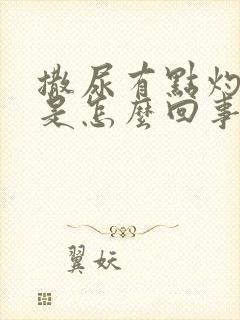 撒尿有點灼
是怎麼回事
翼妖